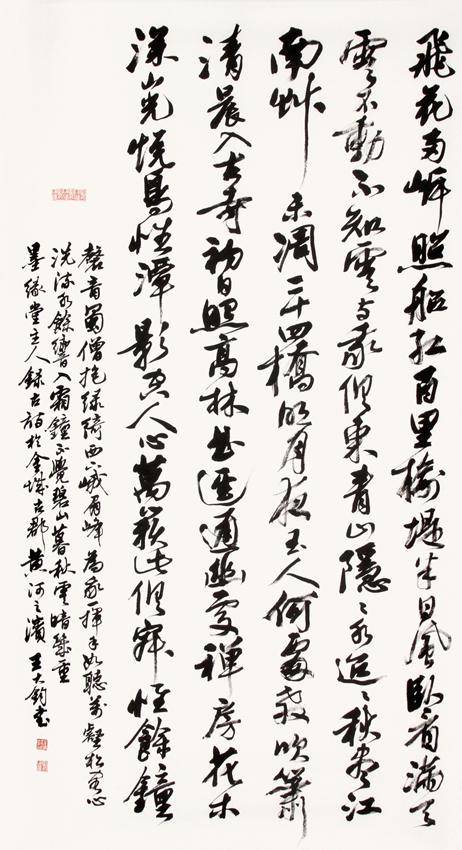 飛花两岸照船紅百里榆堤半日風卧看滿天
雲不動不知雲与我俱東青山隱々水迢々秋盡江
南艸未凋二十四橋明月夜玉人何處教吹簫
清晨入古寺初日照高林曲逕通幽處禪房花木
深山光悅鳥性潭影空人心萬籟此俱寂惟餘鐘
磬音蜀僧抱綠綺西下峨眉峰為我一揮手如聽萬壑松客心
洗流水餘響入霜鐘不覺碧山暮秋雲暗幾重
墨緣堂主人錄古詩於金城古郡黃河之濱王大鈞書